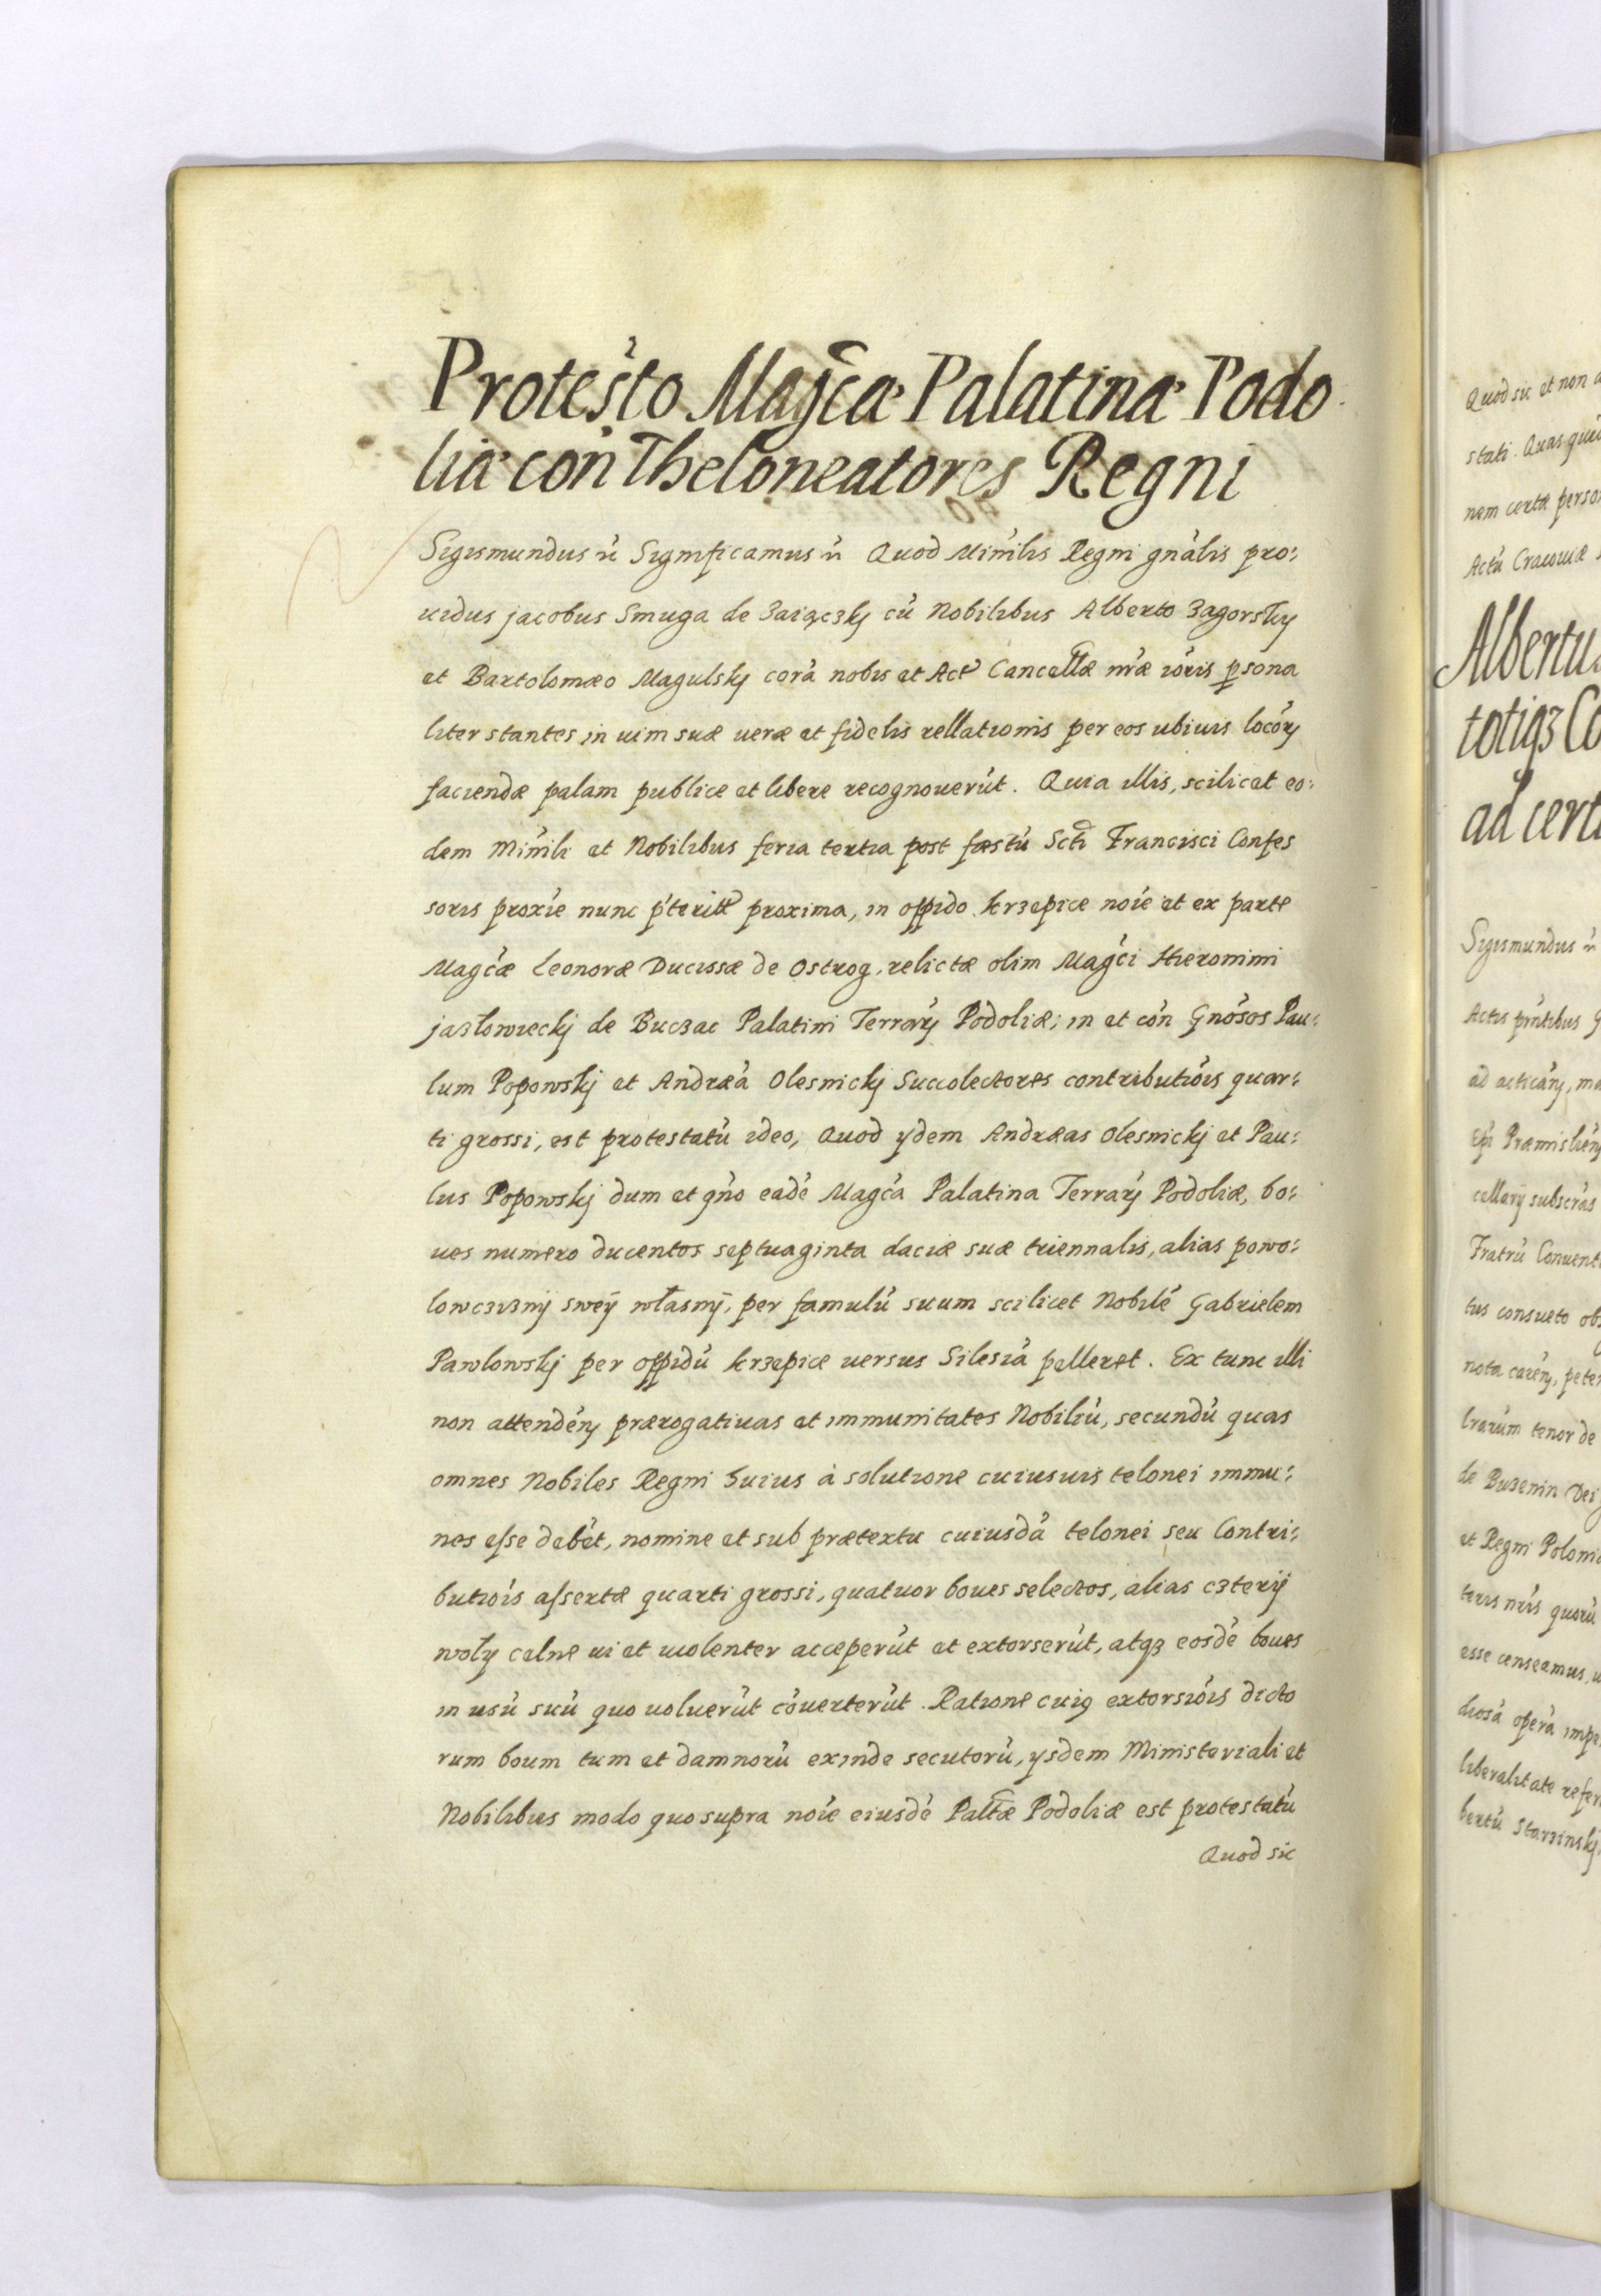 Protesto Magcæ Palatinæ Podo
liæ con Theloneatores Regni
Sigismundus &c Significamus &c Quod Minilis Regni gnalis pro:
uidus jacobus Smuga de Zaiączkj cū Nobilibus Alberto Zagorsky
et Bartolomæo Magulskj corā nobis et Act Cancellæ nræ ioris psona
liter stantes in uim suæ ueræ et fidelis rellationis per eos ubiuis locorȝ
faciendæ palam publice et libere recognouerūt. Quia illis, scilicet eo:
dem Minili et Nobilibus feria tertia post fæstū Scti Francisci Confes
soris proxie nunc pterite proxima, in oppido krzepice noie et ex parte
Magcæ Leonoræ Ducissæ de Ostrog, relictæ olim Magci Hieronimi
jazlowieckj de Buczac Palatini Terrarȝ Podoliæ; in et con Gnosos Pau:
lum Popowskj et Andræā Olesnickj Succolectores contributiois quar:
ti grossi, est protestatū ideo, Quod ydem Andræas Olesnickj et Pau:
lus Popowskj dum et qno eadē Magca Palatina Terrarȝ Podoliæ, bo:
ues numero ducentos septuaginta daciæ suæ triennalis, alias powo:
lowczизnÿ sweÿ własnÿ, per famulū suum scilicet Nobilē Gabrielem
Pawlowskj per oppidū krzepice uersus Silesiā pelleret. Ex tunc illi
non attendeñ prærogatiuas et immunitates Nobiliū, secundū quas
omnes Nobiles Regni huius à solutione cuiusuis telonei immu:
nes esse debēt, nomine et sub prætextu cuiusdā telonei seu Contri:
butiois assertæ quarti grossi, quatuor boues selectos, alias czterÿ
woły celne ui et uiolenter acceperūt et extorserūt, atqȝ eosdē boues
in usū suū quo uoluerūt cōuerterūt. Ratione cuiꝰ extorsiois dicto
rum boum tum et damnorū exinde secutorū, ysdem Ministeriali et
Nobilibus modo quo supra noie eiusdē Paltæ Podoliæ est protestatū
Quod sic
Quod sic et non a
stati. Quas
nem certæ perso
Actū Cracouiæ
Albertu
totiqȝ Co
ad cert
Sigismundus &c
Actis pntibus
ad acticañ, ma
Epi Præmislieñ
cellarÿ subscras
Fratrū Conuent
tus consueto ob
nota careñ, pete
lrarum tenor de
de Buzenin Dei
et Regni Poloni
teris nris quorū
esse censeamus,
diosā operā impe
liberalitate refer
bertū Starzinskj